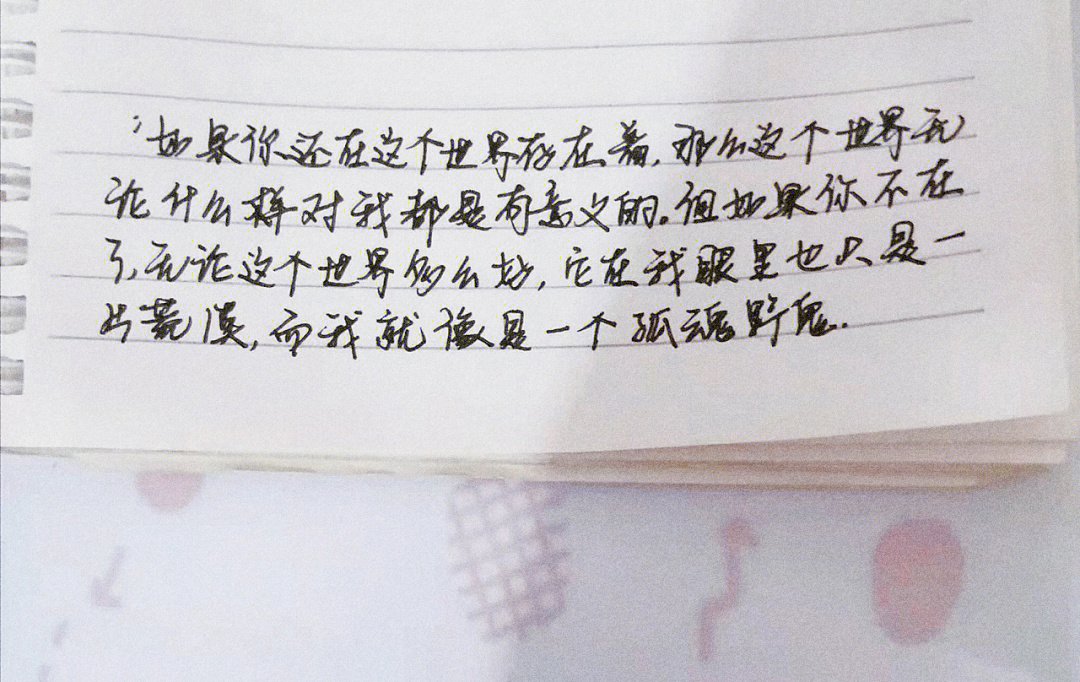 "如果你还在这个世界存在着,那么这个世界无
论什么样对我都是有意义的。但如果你不在
了,无论这个世界多么好,它在我眼里也只是一
片荒漠,而我就像是一个孤魂野鬼.